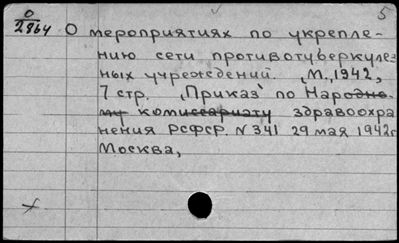 О
2864
5
О мероприятиях по укрепле-
нию сети противотуберкулез
ных учреждений. М., 1942,
7 стр. „Приказ" по Народно-
му комиссариату здравоохра
нения РСФСР. N 341 29 мая 1942г
Москва,